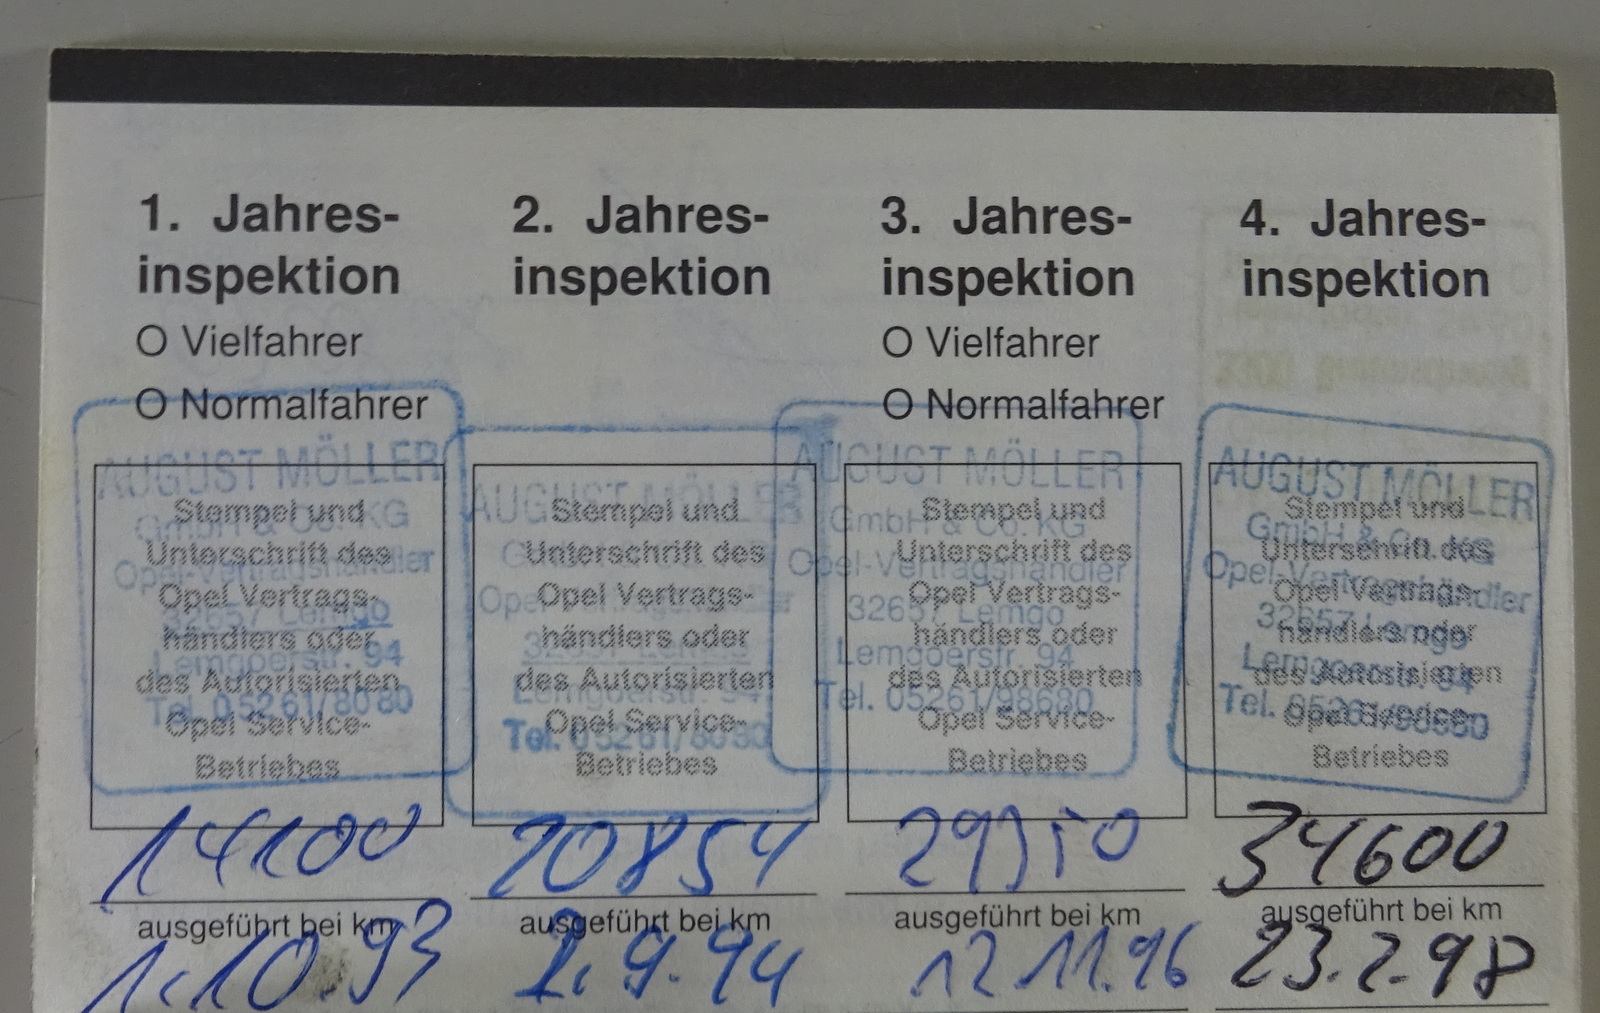 1. Jahres-
inspektion
O Vielfahrer
O Normalfahrer
AUGUST MÖLLER
GmbH & Co. KG
Opel-Vertragshändler
32657 Lemgo
Lemgoerstr. 94
Tel. 05261/8080
Stempel und
Unterschrift des
Opel Vertrags-
händlers oder
des Autorisierten
Opel Service-
Betriebes
14100
ausgeführt bei km
1.10.93
2. Jahres-
inspektion
AUGUST MÖLLER
Lemgoerstr. 94
Tel. 05261/8080
Stempel und
Unterschrift des
Opel Vertrags-
händlers oder
des Autorisierten
Opel Service-
Betriebes
20854
ausgeführt bei km
9.94
3. Jahres-
inspektion
O Vielfahrer
O Normalfahrer
AUGUST MÖLLER
GmbH & Co. KG
Opel-Vertragshändler
32657 Lemgo
Lemgoerstr. 94
Tel. 05261/98680
Stempel und
Unterschrift des
Opel Vertrags-
händlers oder
des Autorisierten
Opel Service-
Betriebes
ausgeführt bei km
12.11.96
4. Jahres-
inspektion
AUGUST MÖLLER
GmbH & Co. KG
Opel-Vertragshändler
32657 Lemgo
Lemgoerstr. 94
Tel. 05261/98680
Stempel und
Unterschrift des
Opel Vertrags-
händlers oder
des Autorisierten
Opel Service-
Betriebes
34600
ausgeführt bei km
23.2.98